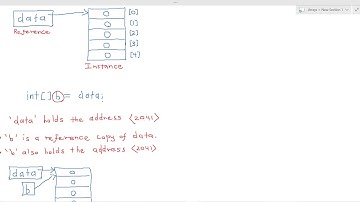 data
Reference
0 [0]
0 [1]
0 [2]
0 [3]
0 [4]
Instance
int[] b = data;
'data' holds the address <2041>
'b' is a reference copy of data.
'b' also holds the address <2041>
data
b
0
0
0
0